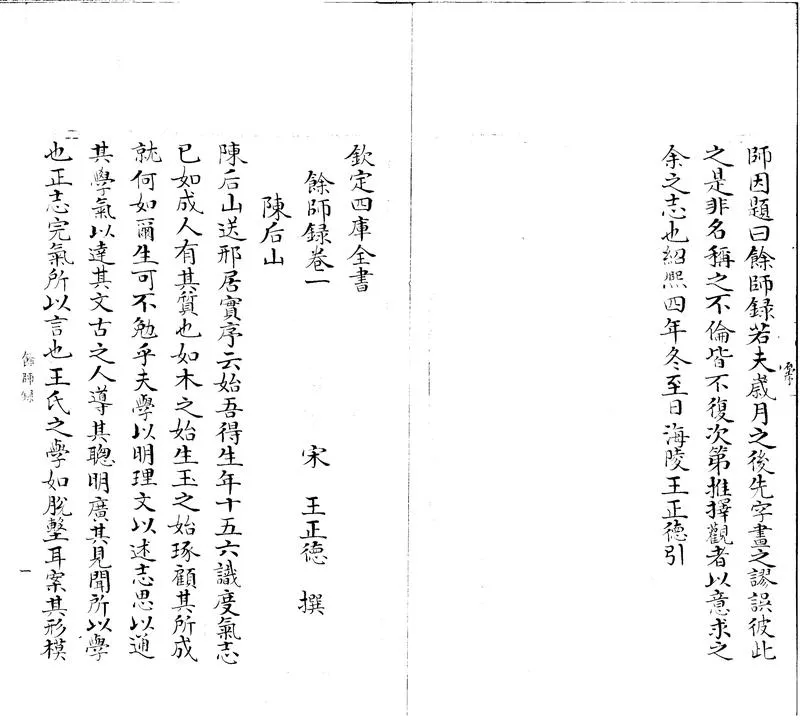 師因題曰餘師錄若夫歲月之後先字畫之謬誤彼此
之是非名稱之不倫皆不復次第推擇觀者以意求之
余之志也紹熙四年冬至日海陵王正德引
欽定四庫全書
餘師錄卷一
宋 王正德 撰
陳后山
陳后山送邢居實序云始吾得生年十五六識度氣志
已如成人有其質也如木之始生玉之始琢顧其所成
就何如爾生可不勉乎夫學以明理文以述志思以通
其學氣以達其文古之人導其聰明廣其見聞所以學
也正志完氣所以言也王氏之學如脫墼耳案其形模
餘師錄
一